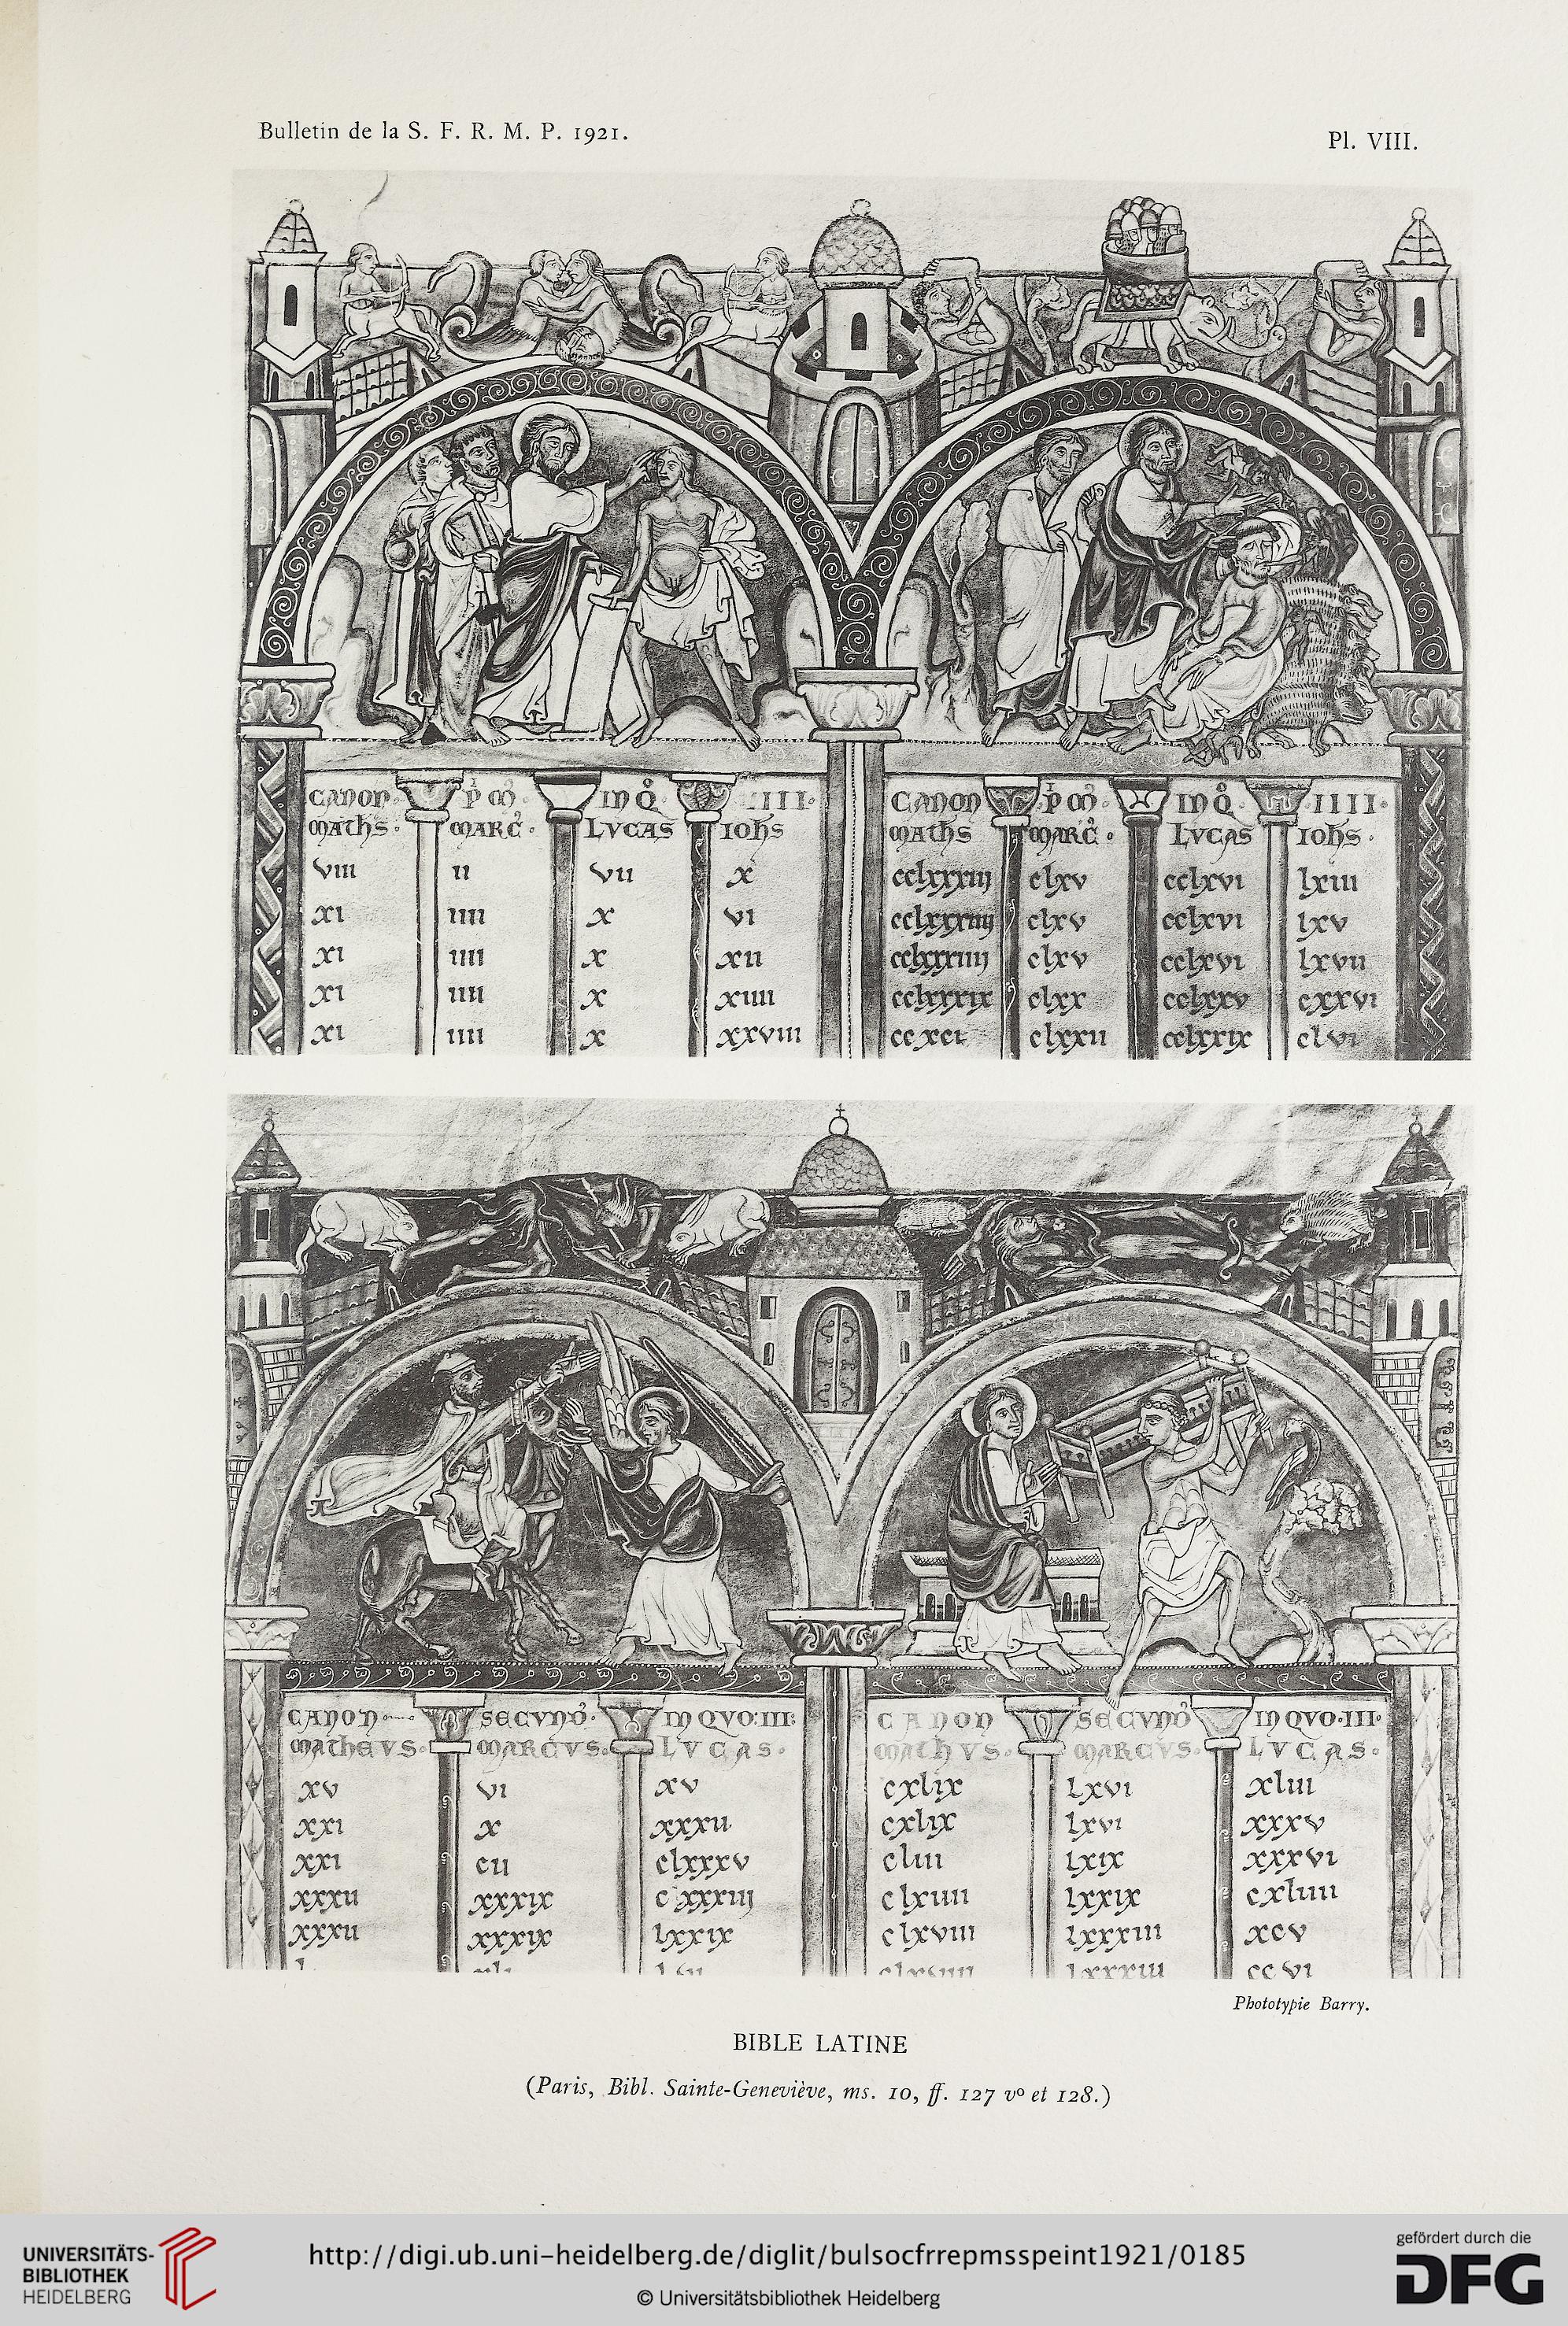 Bulletin de la S. F. R. M. P. 1921.
Pl. VIII.
CANON P̊ M̊ IN Q̊ IIII
MATHS MARC̊ LVCAS IOHS
viii ii vii x
xi iiii x vi
xi iiii x xii
xi iiii x xiiii
xi iiii x xxviii
CANON P̊ M̊ IN Q̊ IIII
MATHS MARC̊ LVCAS IOHS
cclxxxiiij clxv cclxvi lxiii
cclxxxiiij clxv cclxvi lxv
cclxxxiiij clxv cclxvi lxvii
cclxxxix clxx cclxxv cxxvi
ccxci clxxii cclxxix clvi
CANON SECVNDO IN QVO III
MATHEVS MARCVS LVCAS
xv vi xv
xxi x xxxii
xxi cii clxxxv
xxxii xxxix
xxxii xxxix lxxix
CANON SECVNDO IN QVO III
MATHVS MARCVS LVCAS
cxlix lxvi xliii
cxlix lxvi xxxv
cliii lxix xxxvi
clxiiii lxxix cxliiii
clxviii lxxxiii xcv
lxxxiii ccvi
Phototypie Barry.
BIBLE LATINE
(Paris, Bibl. Sainte-Geneviève, ms. 10, ff. 127 vº et 128.)
UNIVERSITÄTS-
BIBLIOTHEK
HEIDELBERG
http://digi.ub.uni-heidelberg.de/diglit/bulsocfrrepmsspeint1921/0185
© Universitätsbibliothek Heidelberg
gefördert durch die
DFG